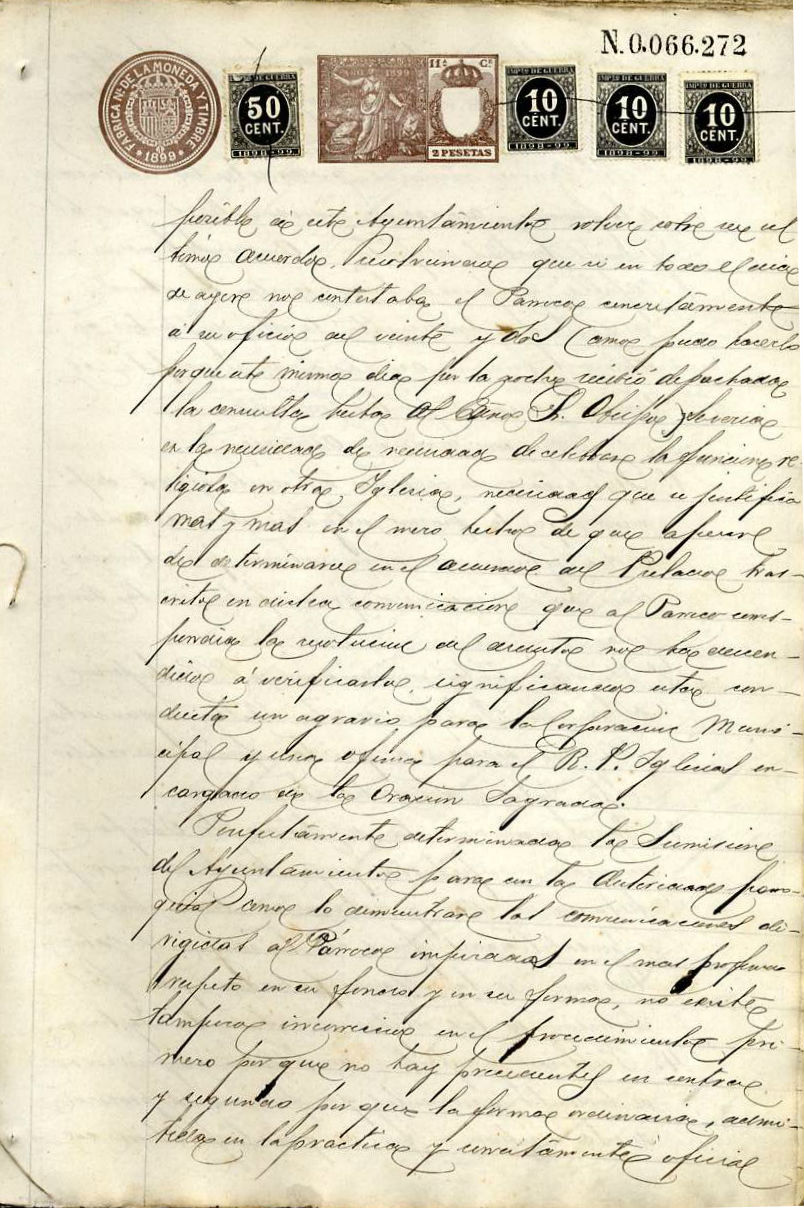 N.0.066.272
FABRICA NL DE LA MONEDA Y TIMBRE
1899
IMPTO DE GUERRA
50
CENT.
1898-99
1899
11ª Cª
2 PESETAS
IMPTO DE GUERRA
10
CENT.
1898-99
IMPTO DE GUERRA
10
CENT.
1898-99
IMPTO DE GUERRA
10
CENT.
1898-99
posible á este Ayuntamiento volver sobre sus ul
timos acuerdos, que si en todo el dia
de ayer nos contestaba el Parroco concretamente
á su oficio del veinte y dos como pudo hacerlo
porque este mismo dia por la noche recibió despachada
la consulta hecha al Sr. Obispo,
en la necesidad de celebrar la funcion re-
ligiosa en otra Iglesia, necesidad que se justifica
mas y mas en el mero hecho de que apesar
de determinarse en el acuerdo del Prelado tras-
crito en dicha comunicacion que al Parroco corres-
pondia la resolucion del asunto no ha descen-
dido á verificarlo, significando esta con-
ducta un agravio para la Corporacion Muni-
cipal y una ofensa para el R. P. Iglesias en-
cargado de la Oracion Sagrada.
Perfectamente determinada la Sumision
del Ayuntamiento para con la Autoridad parro-
quial como lo demuestran las comunicaciones di-
rigidas al Párroco inspiradas en el mas profundo
respeto en su fondo y en su forma, no existe
tampoco incorreccion en el procedimiento pri-
mero por que no hay precedentes en contra
y segundo por que la forma ordinaria, admi-
tida en la practica y oficial